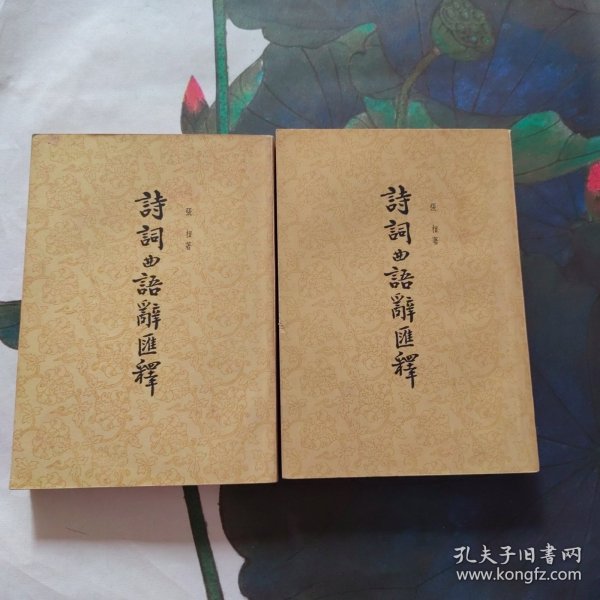 詩詞曲語辭匯釋
張相著
詩詞曲語辭匯釋
張相著
孔夫子旧书网
www.kongfz.com